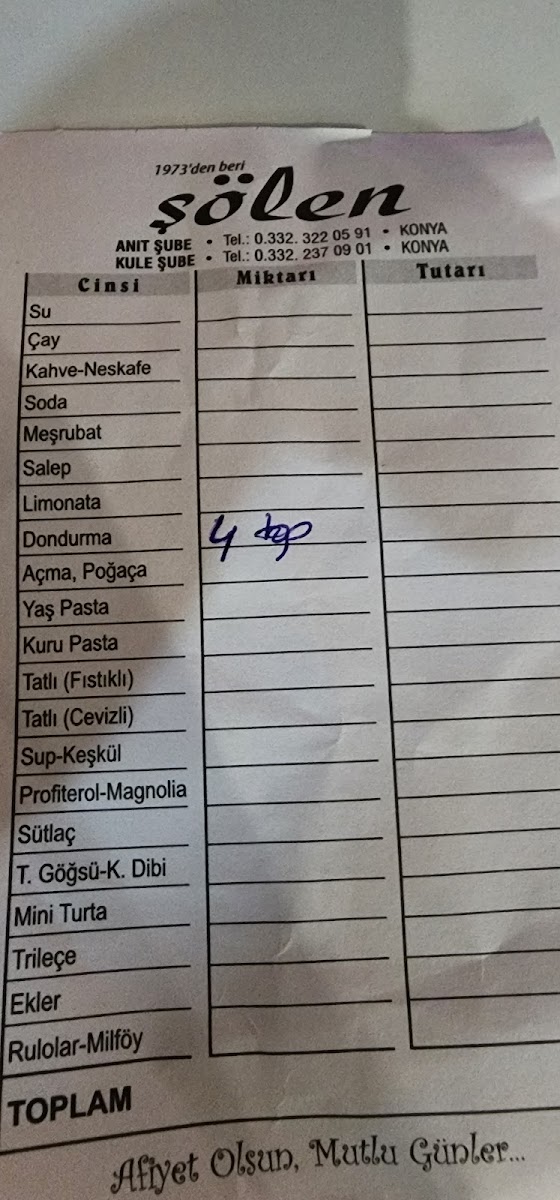 1973'den beri
şölen
ANIT ŞUBE • Tel.: 0.332. 322 05 91 • KONYA
KULE ŞUBE • Tel.: 0.332. 237 09 01 • KONYA
Cinsi Miktarı Tutarı
Su
Çay
Kahve-Neskafe
Soda
Meşrubat
Salep
Limonata
Dondurma 4 top
Açma, Poğaça
Yaş Pasta
Kuru Pasta
Tatlı (Fıstıklı)
Tatlı (Cevizli)
Sup-Keşkül
Profiterol-Magnolia
Sütlaç
T. Göğsü-K. Dibi
Mini Turta
Trileçe
Ekler
Rulolar-Milföy
TOPLAM
Afiyet Olsun, Mutlu Günler...